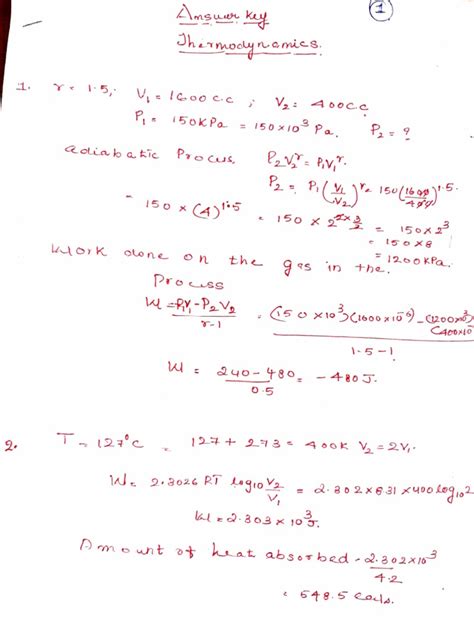 Answer key
①
Thermodynamics.
1. r = 1.5, V₁ = 1600 c.c ; V₂ = 400 c.c
P₁ = 150 kPa = 150×10³ Pa. P₂ = ?
adiabatic Process P₂V₂ʳ = P₁V₁ʳ.
P₂ = P₁(V₁/V₂)ʳ = 150(1600/400)^1.5
= 150 × (4)^1.5 = 150 × 2^(2×3/2) = 150×2³
= 150×8
= 1200 kPa.
Work done on the gas in the
Process
W = P₁V₁ - P₂V₂ / r-1 = (150×10³)(1600×10⁻⁶) - (1200×10³)(400×10⁻⁶) / 1.5-1
W = 240-480 / 0.5 = -480 J.
2. T = 127°C = 127 + 273 = 400K V₂ = 2V₁.
W = 2.3026 RT log₁₀ V₂/V₁ = 2.302×8.31×400 log₁₀2
W = 2.303 × 10³ J.
Amount of heat absorbed = 2.302×10³ / 4.2
= 548.5 cals.